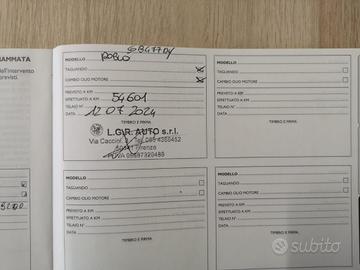 AMMATA
dell'intervento
previsti.
MODELLO
TAGLIANDO
CAMBIO OLIO MOTORE
PREVISTO A KM
EFFETTUATO A KM 54601
TELAIO N°
DATA 12 07 2024
TIMBRO E FIRMA
L.G.R. AUTO s.r.l.
Via Caccini
Firenze
MODELLO
TAGLIANDO
CAMBIO OLIO MOTORE
PREVISTO A KM
EFFETTUATO A KM
TELAIO N°
DATA
TIMBRO E FIRMA
MODELLO
TAGLIANDO
CAMBIO OLIO MOTORE
PREVISTO A KM
EFFETTUATO A KM
TELAIO N°
DATA
TIMBRO E FIRMA
MODELLO
TAGLIANDO
CAMBIO OLIO MOTORE
PREVISTO A KM
EFFETTUATO A KM
TELAIO N°
DATA
TIMBRO E FIRMA
subito